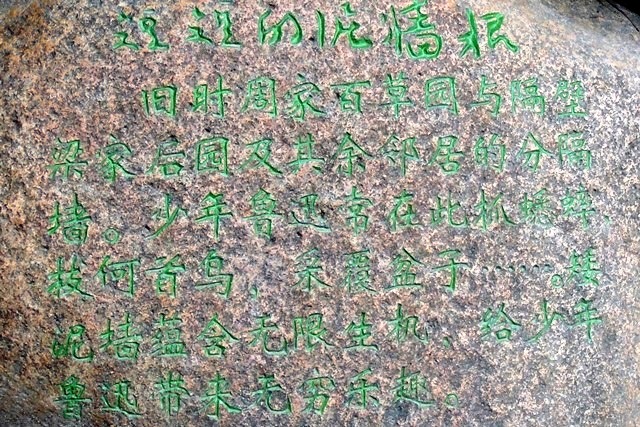 短短的泥墙根
旧时周家百草园与隔壁
梁家后园及其余邻居的分隔
墙。少年鲁迅常在此抓蟋蟀、
拔何首乌、采覆盆子……。矮
泥墙蕴含无限生机、给少年
鲁迅带来无穷乐趣。